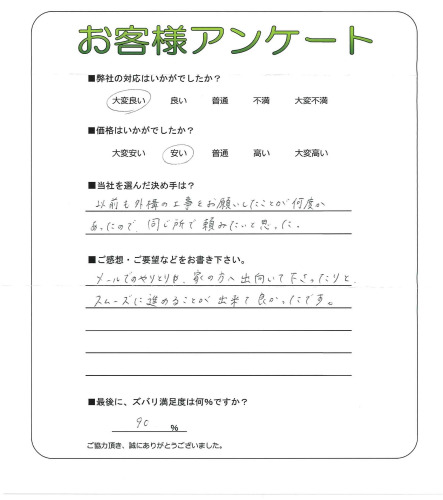 お客様アンケート
■弊社の対応はいかがでしたか？
大変良い 良い 普通 不満 大変不満
■価格はいかがでしたか？
大変安い 安い 普通 高い 大変高い
■当社を選んだ決め手は？
以前も外構の工事をお願いしたことが何度か
あったので、同じ所で頼みたいと思った。
■ご感想・ご要望などをお書き下さい。
メールでのやりとりや、家の方へ出向いて下さったりと、
スムーズに進めることが出来て良かったです。
■最後に、ズバリ満足度は何%ですか？
90 %
ご協力頂き、誠にありがとうございました。